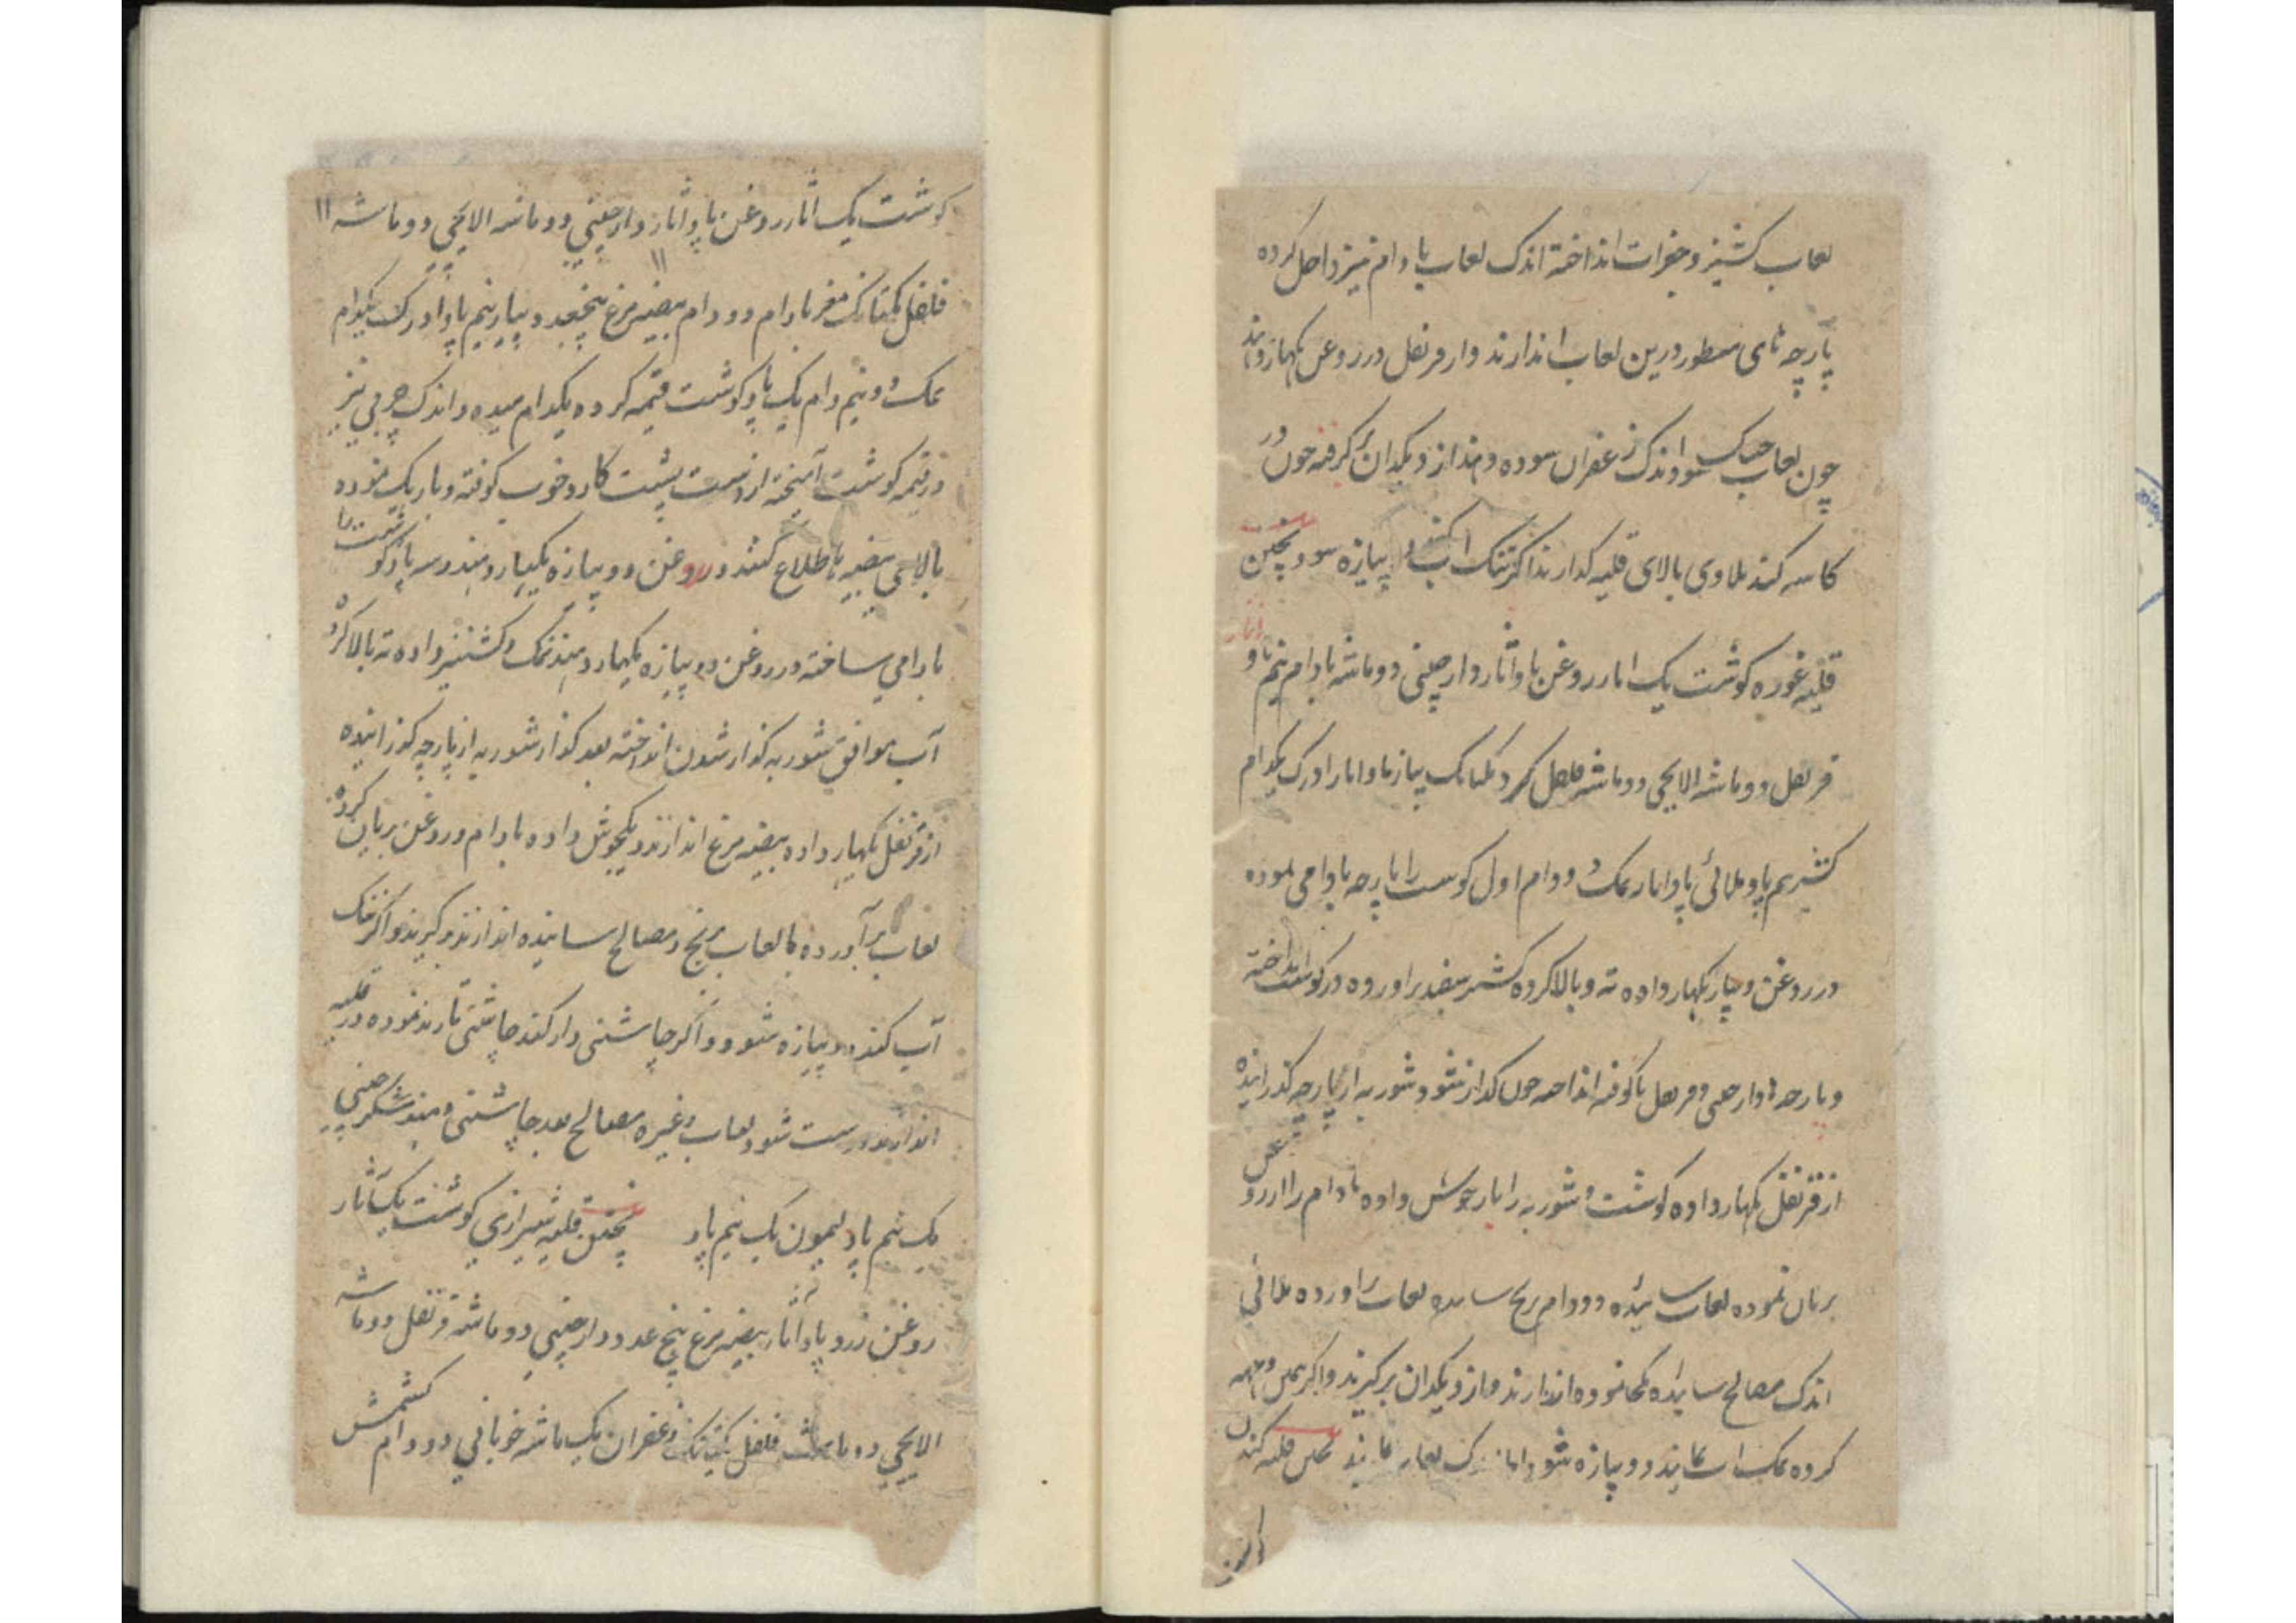 لعاب کشنیز و جغرات انداخته اندک لعاب بادام نیز داخل کرده
پارچه های مسطور درین لعاب اندازند و از قرنفل در روغن بکهار دهند
چون لعاب خشک شود اندک زعفران سوده دهند از دیکدان بر گرفته چون در
کاسه کنند ملاوی بالای قلیه کذارند اکر تنک آب کنند دو پیازه شود پختن
قلیه غوره کوشت یک اثار روغن پاو آثار دارچینی دو ماشه بادام نیم پاو
قرنفل دو ماشه الایچی دو ماشه فلفل کرد یکتانک پیاز پاو اثار ادرک یکدام
کشنیز نیم پاو ملائی پاو اثار نمک دو دام اول کوشت را پارچه بادامی نموده
در روغن و پیاز بکهار داده ته و بالا کرده کشنیز سفید برآورده در کوشت انداخته
و پارچه دارچینی و قرنفل ناکوفته انداخته چون کداز شود شوربه از پارچه کذرانیده
از قرنفل بکهار داده کوشت و شوربه را باز جوش داده بادام را در روغن
بریان نموده لعاب سائیده دو دام برنج سائیده لعاب برآورده ملائی
اندک مصالح سائیده یکجا نموده اندازند و از دیکدان برکیرند و اکر
کرده نمک آب نمایند دو پیازه شود پختن قلیه کندن
کوشت یک آثار روغن پاو آثار دارچینی دو ماشه الایچی دو ماشه
فلفل یکتانک مغز بادام دو دام بیضه مرغ پنجعدد پیاز نیم پاو ادرک یکدام
نمک دو نیم دام یک پاو کوشت قیمه کرده یکدام میده و اندک چربی نیز
در قیمه کوشت آمیخته از دست پشت کارد خوب کوفته و باریک نموده
بالای بیضه ها طلاع کنند در روغن دو پیازه بکهار دهند و سه پاو کوشت را
بادامی ساخته در روغن دو پیازه بکهار دهند نمک و کشنیز داده ته بالا کرده
آب موافق شوربه کداز شدن انداخته بعد کداز شوربه از پارچه کذرانیده
از قرنفل بکهار داده بیضه مرغ اندازند و یکجوش داده بادام در روغن بریان کرده
لعاب برآورده با لعاب برنج و مصالح سائیده اندازند بر کیرند و اکر تنک
آب کنند دو پیازه شود و اکر چاشنی دار کنند چاشنی تار بند نموده در قلیه
اندازند درست شود لعاب و غیره مصالح بعد چاشنی دهند شکر چینی
یک نیم پاو لیمون یک نیم پاو پختن قلیه شیرازی کوشت یک آثار
روغن زرد پاو آثار بیضه مرغ پنج عدد دارچینی دو ماشه قرنفل دو ماشه
الایچی دو ماشه فلفل یکتانک زعفران یک ماشه خوبانی دو دام کشمش